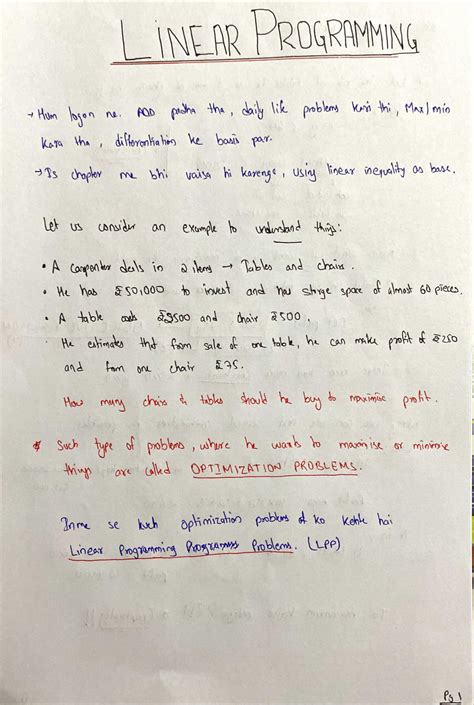 LINEAR PROGRAMMING
→ Hum logon ne AOD padha tha, daily life problems kari thi, Max/min
Kara tha, differentiation ke basis par.
→ Is chapter me bhi vaisa hi karenge, using linear inequality as base.
Let us consider an example to understand things:
• A carpenter deals in 2 items → Tables and chairs.
• He has ₹50,000 to invest and has storge space of almost 60 pieces.
• A table costs ₹2500 and chair ₹500.
• He estimates that from sale of one table, he can make profit of ₹250
and from one chair ₹75.
How many chairs & tables should he buy to maximise profit.
* Such type of problems, where he wants to maximise or minimise
things are called OPTIMIZATION PROBLEMS.
Inme se kuch optimization problems ko kehte hai
Linear Programming Problems. (LPP)
Pg 1